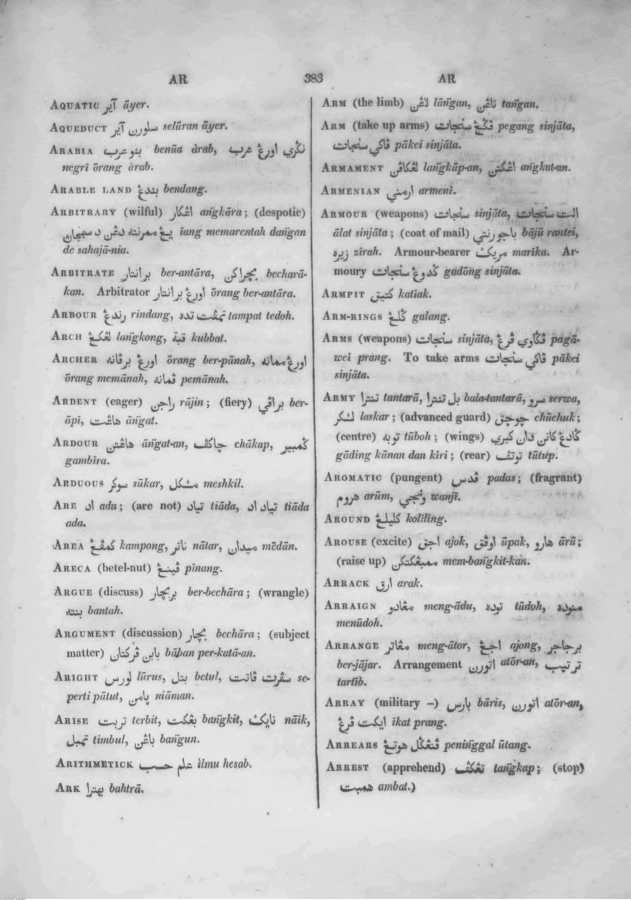 AR
383
AR
AQUATIC آير āyer.
AQUEDUCT سلورن آير selūran āyer.
ARABIA بنو عرب benūa àrab, نڬري اورڠ عرب
negrī ōrang àrab.
ARABLE LAND بندڠ bendang.
ARBITRARY (wilful) اڠكار angkāra; (despotic)
iang memarentah dangan
de sahajā-nia.
ARBITRATE برانتار ber-antāra, بچراكن bechará-
kan. Arbitrator اورڠ برانتار ōrang ber-antāra.
ARBOUR رندڠ rindang, تمڤت تده tampat tedoh.
ARCH لڠكڠ langkong, قبة kubbat.
ARCHER اورڠ برڤانه ōrang ber-pānah, اورڠ ممانه
ōrang memānah, ڤمانه pemānah.
ARDENT (eager) راجن rājin; (fiery) براڤي ber-
āpi, هاڠت āngat.
ARDOUR هاڠتن āngat-an, چاكڤ chākap, ڬمبير
gambīra.
ARDUOUS سوكر sūkar, مشكل meshkil.
ARE اد ada; (are not) تياد tiāda, تياد اد tiāda
ada.
AREA كمڤڠ kampong, ناتر nātar, ميدان mēdān.
ARECA (betel-nut) ڤينڠ pīnang.
ARGUE (discuss) بربچار ber-bechāra; (wrangle)
بنته bantah.
ARGUMENT (discussion) بچار bechāra; (subject
matter) باب ڤركتان bāban per-katā-an.
ARIGHT لورس lūrus, بتل betul, سڤرت ڤاتت se-
perti pātut, niāman.
ARISE تربت terbit, بڠكت bangkit, نايك nāik,
تمبل timbul, باڠن bangun.
ARITHMETICK علم حسب ilmu hesab.
ARK بهترا bahtrā.
ARM (the limb) لاڠن lāngan, تاڠن tangan.
ARM (take up arms) ڤڬڠ سنجات pegang sinjāta,
ڤاكي سنجات pākei sinjāta.
ARMAMENT لڠكاڤن langkāp-an, اڠكتن angkut-an.
ARMENIAN ارمني armeni.
ARMOUR (weapons) سنجات sinjāta, الت سنجات
ālat sinjāta; (coat of mail) باجو رنتي bājū rantei,
زيره zirah. Armour-bearer مريك marika. Ar-
moury ڬدوڠ سنجات gadōng sinjāta.
ARMPIT كتيق katiak.
ARM-RINGS ڬلڠ galang.
ARMS (weapons) سنجات sinjāta, ڤڬاوي ڤرڠ pagā-
wei prang. To take arms ڤاكي سنجات pākei
sinjāta.
ARMY تنترا tantarā, بل تنترا bala-tantarā, سرو serwa,
لشكر laskar; (advanced guard) چوچق chūchuk;
(centre) توبه tūboh; (wings) ڬادڠ كانن دان كيري
gāding kānan dan kiri; (rear) توتڤ tūtup.
AROMATIC (pungent) ڤدس padas; (fragrant)
هروم arūm, وڠي wangī.
AROUND كليلڠ kolīling.
AROUSE (excite) اجق ajok, اوڤق ūpak, هارو ārū;
(raise up) ممبڠكتكن mem-bangkit-kan.
ARRACK ارق arak.
ARRAIGN مڠادو meng-ādu, توده tūdoh, منوده
menūdoh.
ARRANGE مڠاتر meng-ātor, اجڠ ajong, برجاجر
ber-jājar. Arrangement اتورن atōr-an, ترتيب
tartīb.
ARRAY (military –) بارس bāris, اتورن atōr-an,
ايكت ڤرڠ īkat prang.
ARREARS ڤنڠڬل هوتڠ peninggal ūtang.
ARREST (apprehend) تڠكڤ tangkap; (stop)
همبت ambat.)